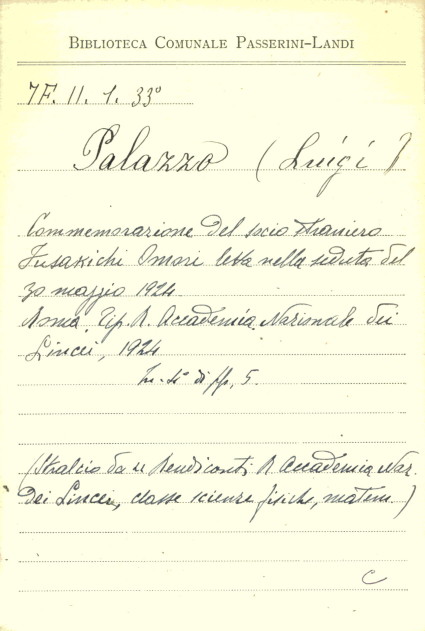 BIBLIOTECA COMUNALE PASSERINI-LANDI
7F. II. 1. 33°
Palazzo (Luigi)
Commemorazione del socio straniero
Fusakichi Omori letta nella seduta del
20 maggio 1924
Roma, Tip. R. Accademia Nazionale dei
Lincei, 1924
In-4° di pp. 5.
(Stralcio da Rendiconti R. Accademia Naz.
dei Lincei, classe scienze fisiche, matem.)
C